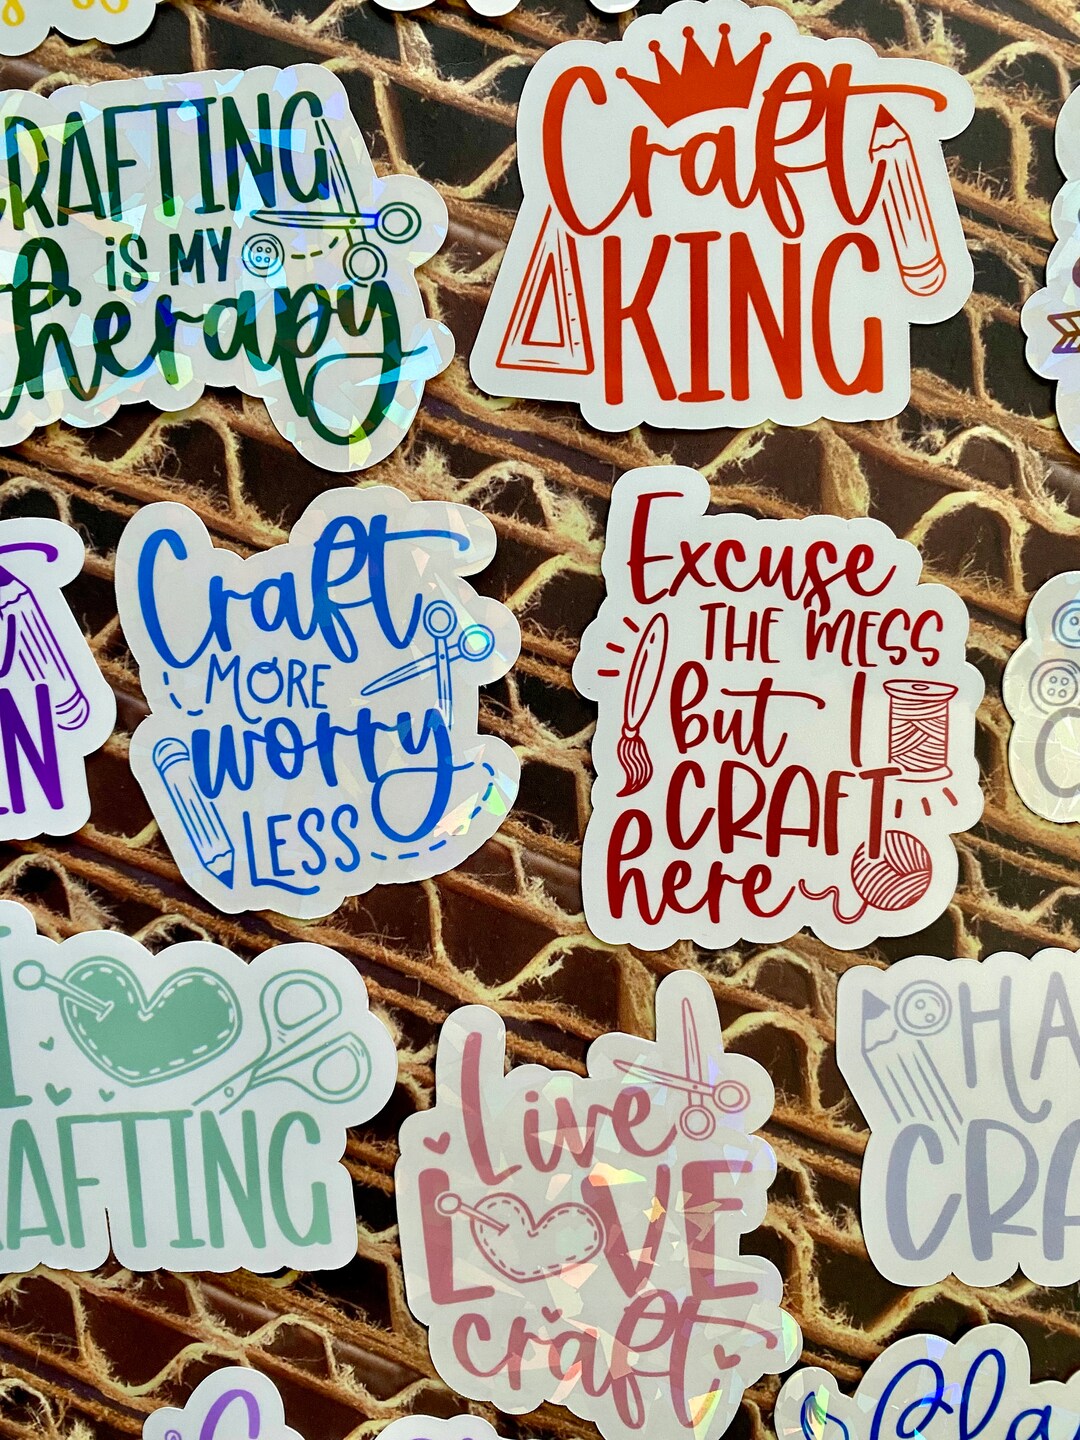 CRAFTING
IS MY
therapy
Craft
KING
Craft
MORE
worry
LESS
Excuse
THE MESS
but I
CRAFT
here
I
CRAFTING
Live
LOVE
craft